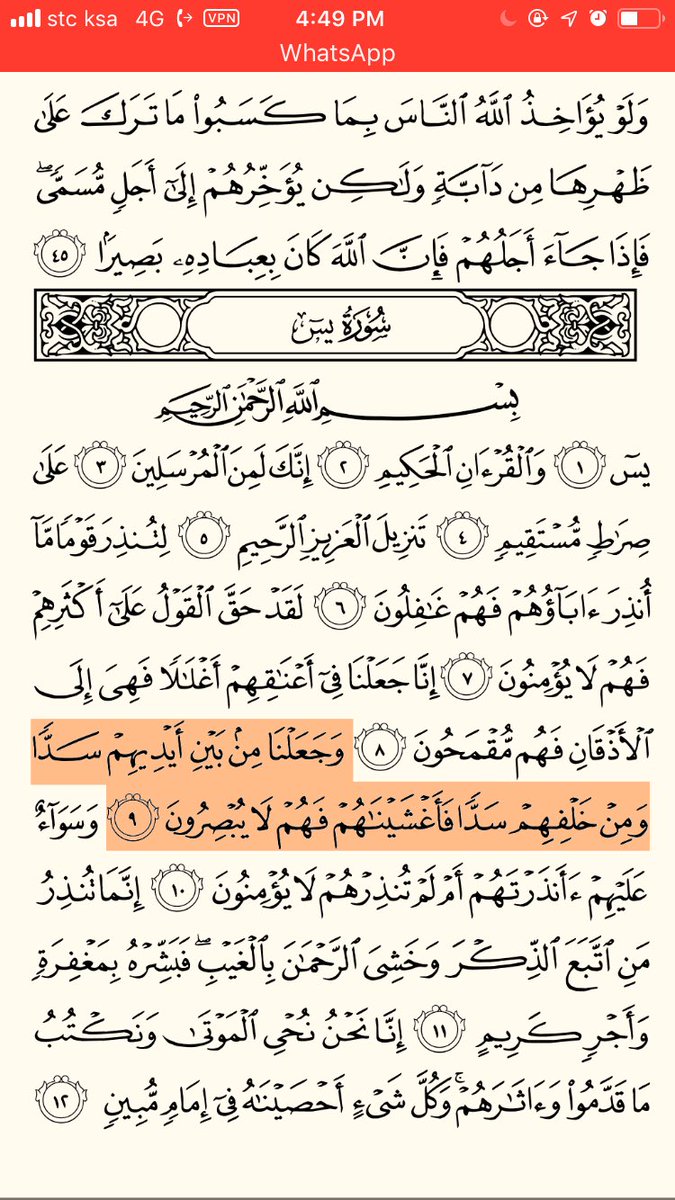 stc ksa 4G VPN 4:49 PM
WhatsApp
وَلَوْ يُؤَاخِذُ ٱللَّهُ ٱلنَّاسَ بِمَا كَسَبُوا۟ مَا تَرَكَ عَلَىٰ
ظَهْرِهَا مِن دَآبَّةٍ وَلَٰكِن يُؤَخِّرُهُمْ إِلَىٰٓ أَجَلٍ مُّسَمًّى ۖ
فَإِذَا جَآءَ أَجَلُهُمْ فَإِنَّ ٱللَّهَ كَانَ بِعِبَادِهِۦ بَصِيرًۢا ٤٥
سُورَةُ يسٓ
بِسْمِ ٱللَّهِ ٱلرَّحْمَٰنِ ٱلرَّحِيمِ
يسٓ ١ وَٱلْقُرْءَانِ ٱلْحَكِيمِ ٢ إِنَّكَ لَمِنَ ٱلْمُرْسَلِينَ ٣ عَلَىٰ
صِرَٰطٍ مُّسْتَقِيمٍ ٤ تَنزِيلَ ٱلْعَزِيزِ ٱلرَّحِيمِ ٥ لِتُنذِرَ قَوْمًا مَّآ
أُنذِرَ ءَابَآؤُهُمْ فَهُمْ غَٰفِلُونَ ٦ لَقَدْ حَقَّ ٱلْقَوْلُ عَلَىٰٓ أَكْثَرِهِمْ
فَهُمْ لَا يُؤْمِنُونَ ٧ إِنَّا جَعَلْنَا فِىٓ أَعْنَٰقِهِمْ أَغْلَٰلًا فَهِىَ إِلَى
ٱلْأَذْقَانِ فَهُم مُّقْمَحُونَ ٨ وَجَعَلْنَا مِنۢ بَيْنِ أَيْدِيهِمْ سَدًّا
وَمِنْ خَلْفِهِمْ سَدًّا فَأَغْشَيْنَٰهُمْ فَهُمْ لَا يُبْصِرُونَ ٩ وَسَوَآءٌ
عَلَيْهِمْ ءَأَنذَرْتَهُمْ أَمْ لَمْ تُنذِرْهُمْ لَا يُؤْمِنُونَ ١٠ إِنَّمَا تُنذِرُ
مَنِ ٱتَّبَعَ ٱلذِّكْرَ وَخَشِىَ ٱلرَّحْمَٰنَ بِٱلْغَيْبِ ۖ فَبَشِّرْهُ بِمَغْفِرَةٍ
وَأَجْرٍ كَرِيمٍ ١١ إِنَّا نَحْنُ نُحْىِ ٱلْمَوْتَىٰ وَنَكْتُبُ
مَا قَدَّمُوا۟ وَءَاثَٰرَهُمْ ۚ وَكُلَّ شَىْءٍ أَحْصَيْنَٰهُ فِىٓ إِمَامٍ مُّبِينٍ ١٢